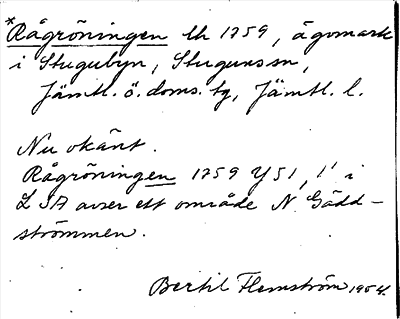 *Rågröningen lh 1759, ägomark
i Stugubyn, Stuguns sn,
Jämtl. ö. doms. tg, Jämtl. l.
Nu okänt.
Rågröningen 1759 Y51, 1' i
LSA avser ett område N. Gädd-
strömmen.
Bertil Flemström 1954.